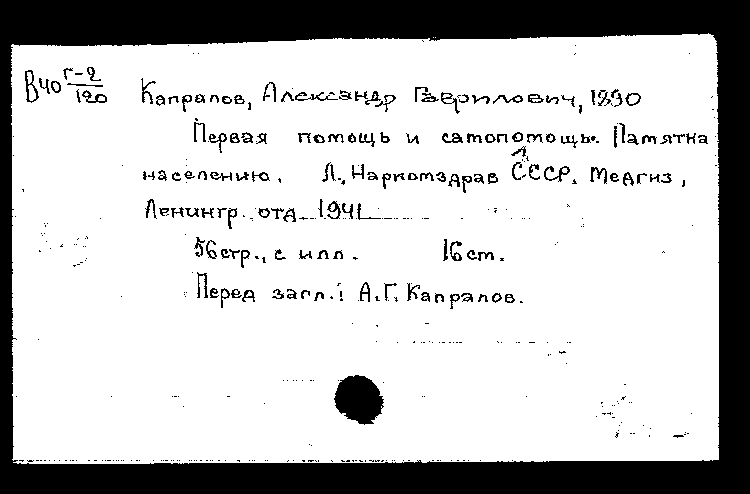 В40 Г-2/120
Капралов, Александр Гаврилович, 1890
Первая помощь и самопомощь. Памятка
населению. Л., Наркомздрав СССР. Медгиз,
Ленингр. отд. 1941
56 стр., с илл. 16 cm.
Перед загл.: А.Г. Капралов.